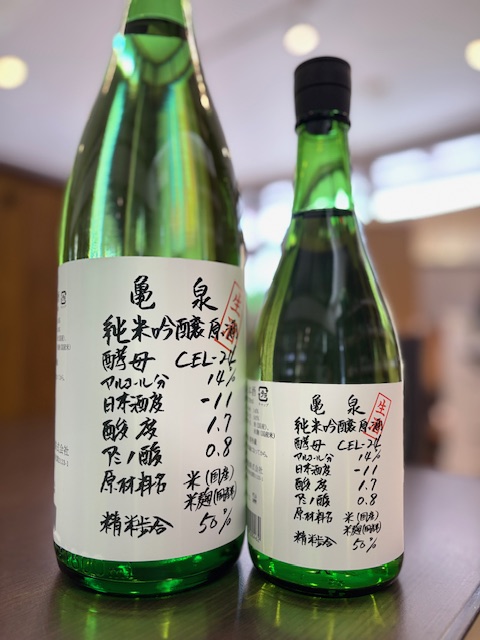 亀泉
生酒
純米吟醸原酒
酵母 CEL-24
アルコール分 14%
日本酒度 -11
酸度 1.7
アミノ酸 0.8
原材料名 米(国産)
米麹(国産米)
精米歩合 50%
亀泉
生酒
純米吟醸原酒
酵母 CEL-24
アルコール分 14%
日本酒度 -11
酸度 1.7
アミノ酸 0.8
原材料名 米(国産)
米麹(国産米)
精米歩合 50%